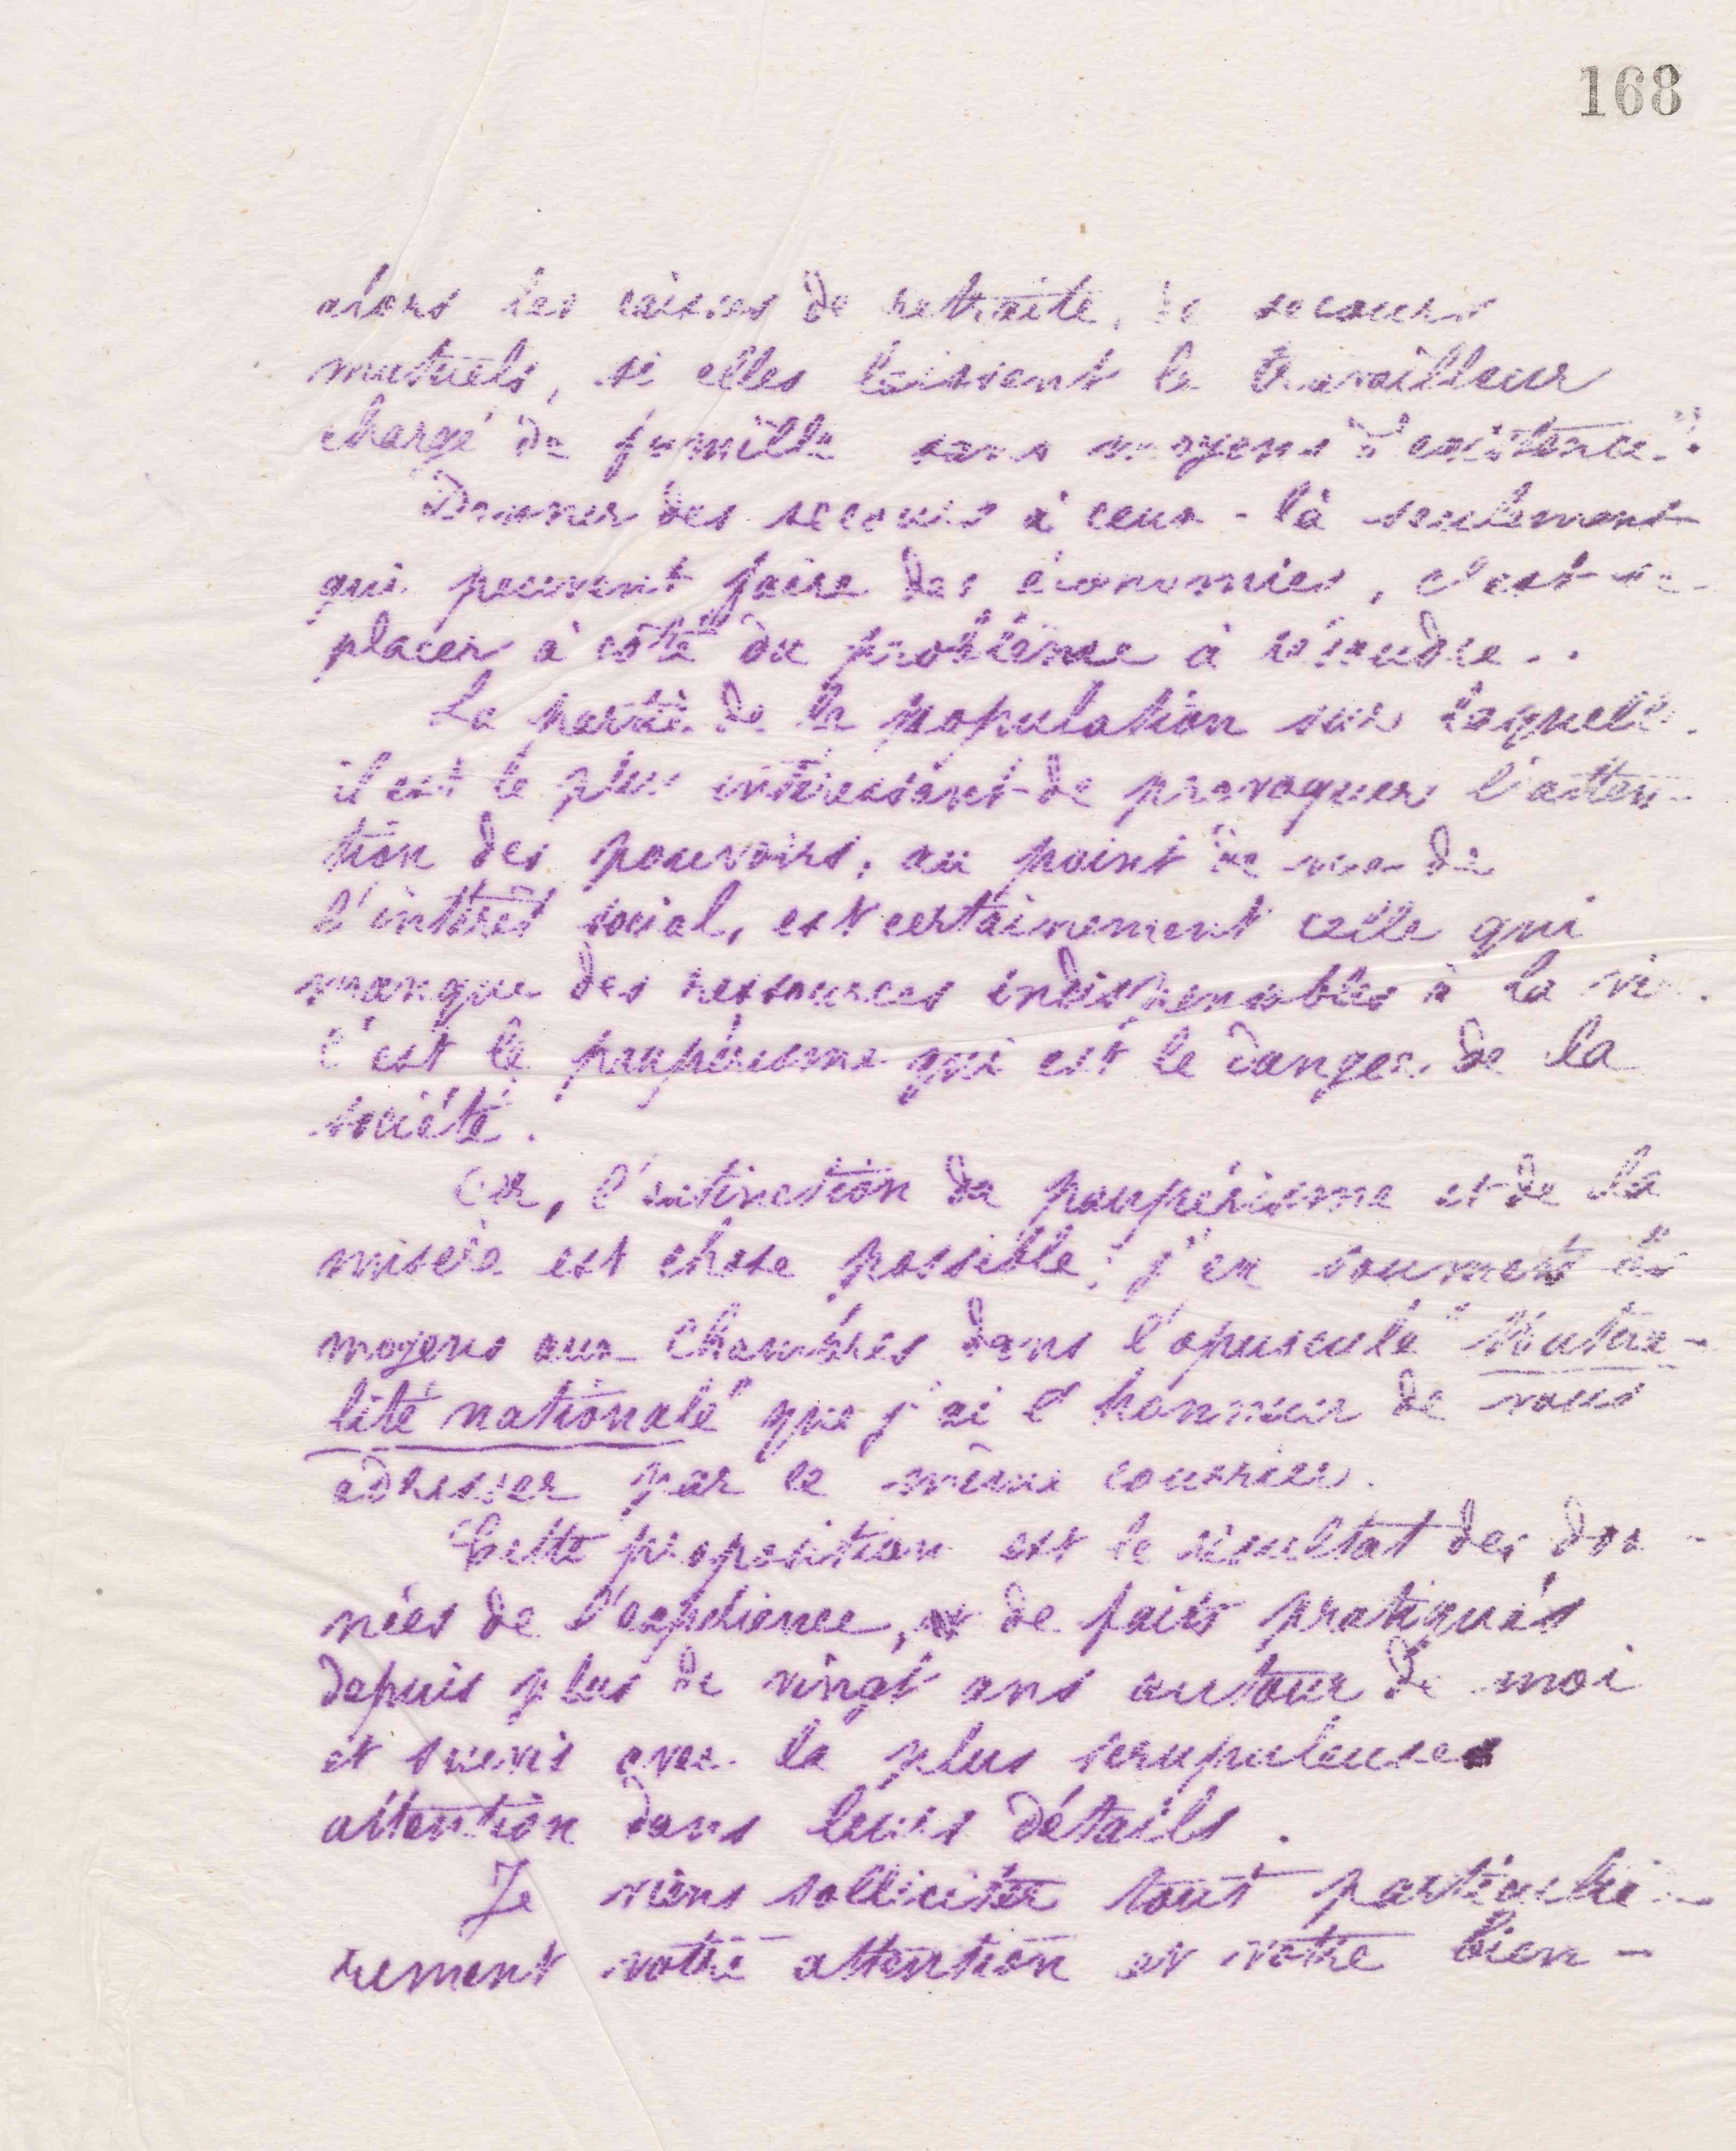 168
alors les caisses de retraite, de secours
mutuels, si elles laissent le travailleur
chargé de famille sans moyens d'existence".
Donner des secours à ceux-là seulement
qui peuvent faire des économies, c'est se
placer à côté du problème à résoudre..
La partie de la population sur laquelle
il est le plus intéressant de provoquer l'atten-
tion des pouvoirs, au point de vue de
l'intérêt social, est certainement celle qui
manque des ressources indispensables à la vie.
C'est le paupérisme qui est le danger de la
société.
Or, l'extinction du paupérisme et de la
misère est chose possible; j'en soumets les
moyens aux Chambres dans l'opuscule "Mutua-
lité nationale" que j'ai l'honneur de vous
adresser par ce même courrier.
Cette proposition est le résultat des don-
nées de l'expérience, et de faits pratiqués
depuis plus de vingt ans autour de moi
et suivis avec la plus scrupuleuse
attention dans leurs détails.
Je viens solliciter tout particuliè-
rement votre attention et votre bien-